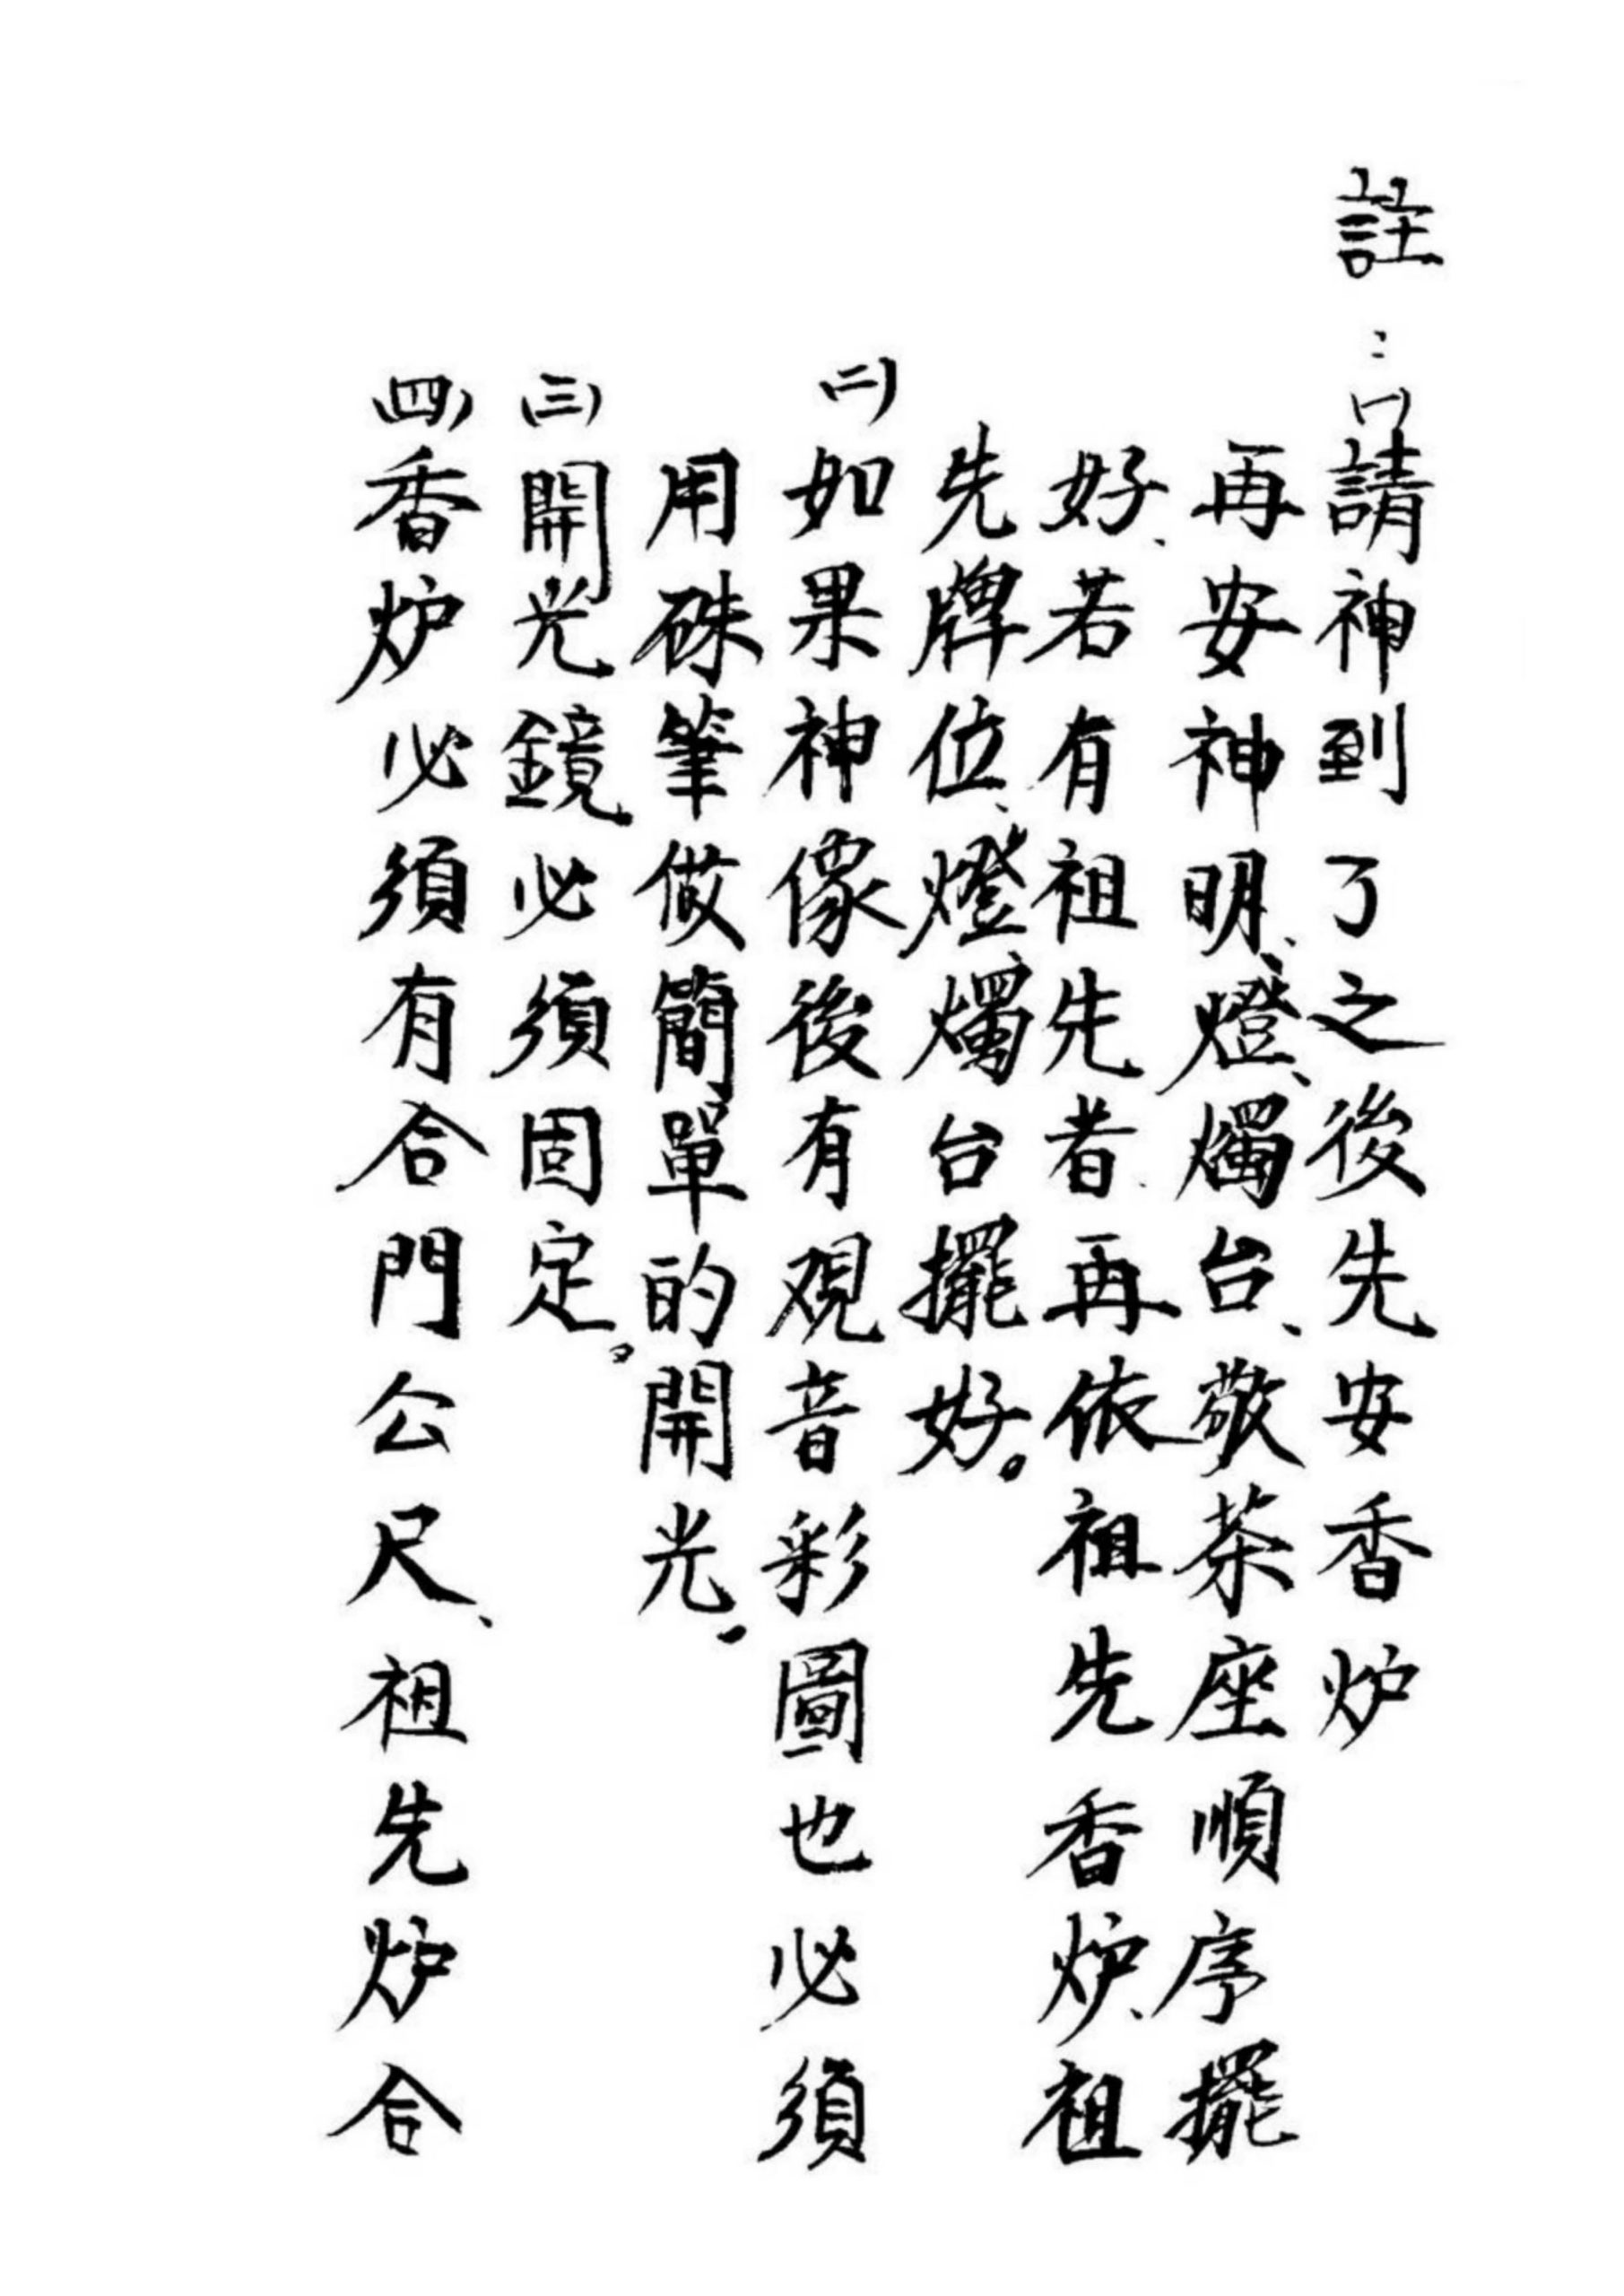 註：(一)請神到了之後先安香炉
再安神明、燈、燭台、敬茶座順序擺
好、若有祖先者、再依祖先香炉、祖
先牌位、燈燭台擺好。
(二)如果神像後有观音彩圖也必須
用硃筆做簡單的開光。
(三)開光鏡必須固定。
(四)香炉必須有合門公尺、祖先炉合